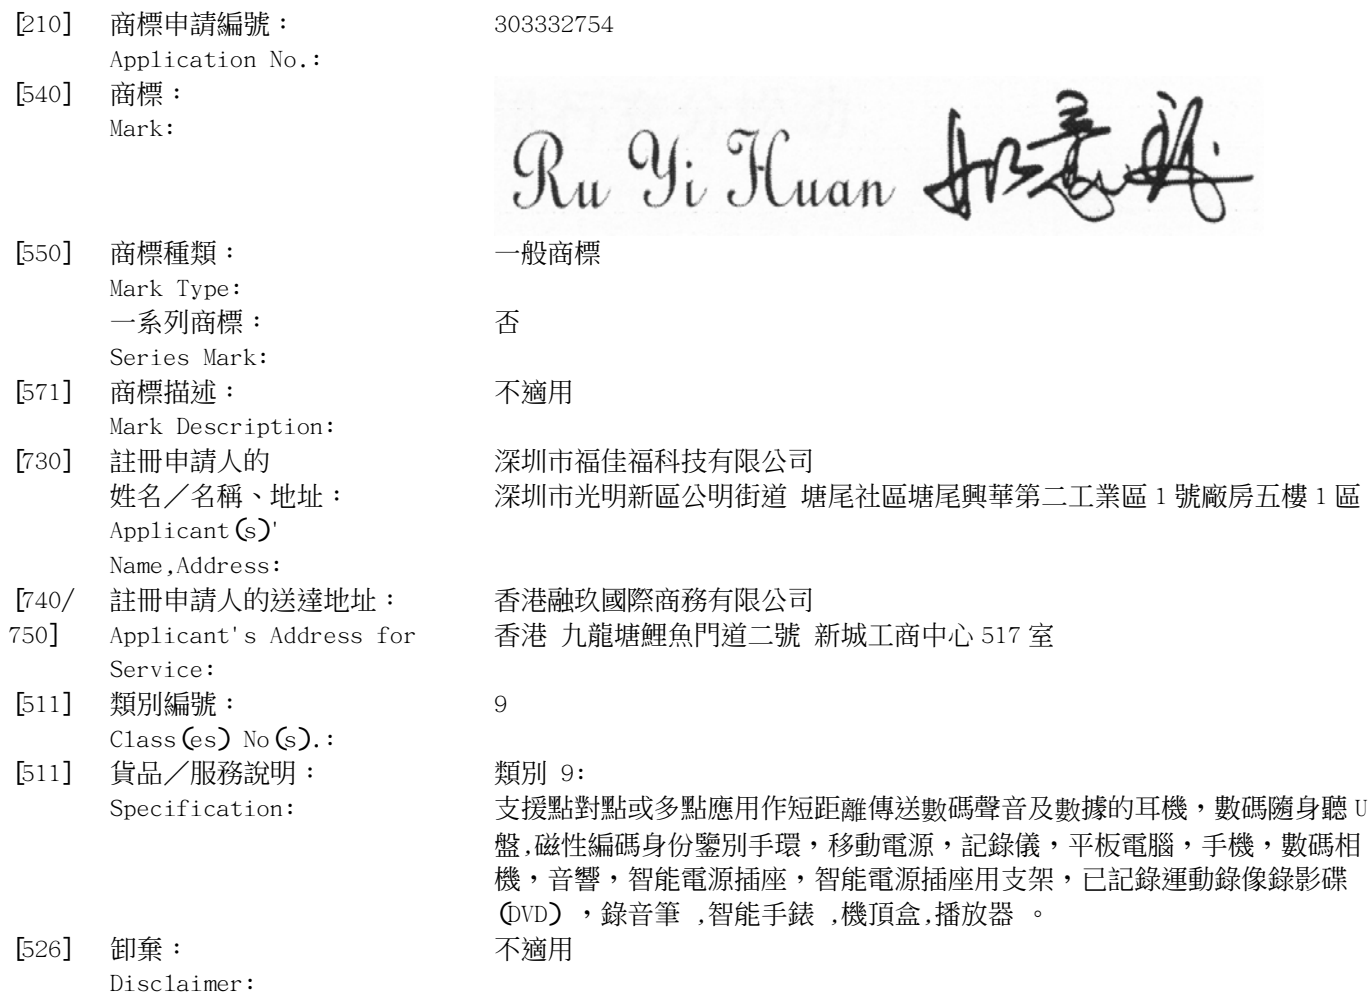 [210] 商標申請編號： 303332754
Application No.:
[540] 商標：
Mark:
Ru Yi Huan 如意
[550] 商標種類： 一般商標
Mark Type:
一系列商標： 否
Series Mark:
[571] 商標描述： 不適用
Mark Description:
[730] 註冊申請人的 深圳市福佳福科技有限公司
姓名／名稱、地址： 深圳市光明新區公明街道 塘尾社區塘尾興華第二工業區 1 號廠房五樓 1 區
Applicant(s)'
Name,Address:
[740/ 註冊申請人的送達地址： 香港融玖國際商務有限公司
750] Applicant's Address for 香港 九龍塘鯉魚門道二號 新城工商中心 517 室
Service:
[511] 類別編號： 9
Class(es) No(s).:
[511] 貨品／服務說明： 類別 9:
Specification: 支援點對點或多點應用作短距離傳送數碼聲音及數據的耳機，數碼隨身聽 U
盤,磁性編碼身份鑒別手環，移動電源，記錄儀，平板電腦，手機，數碼相
機，音響，智能電源插座，智能電源插座用支架，已記錄運動錄像錄影碟
(DVD) ，錄音筆 ,智能手錶 ,機頂盒,播放器 。
[526] 卸棄： 不適用
Disclaimer: